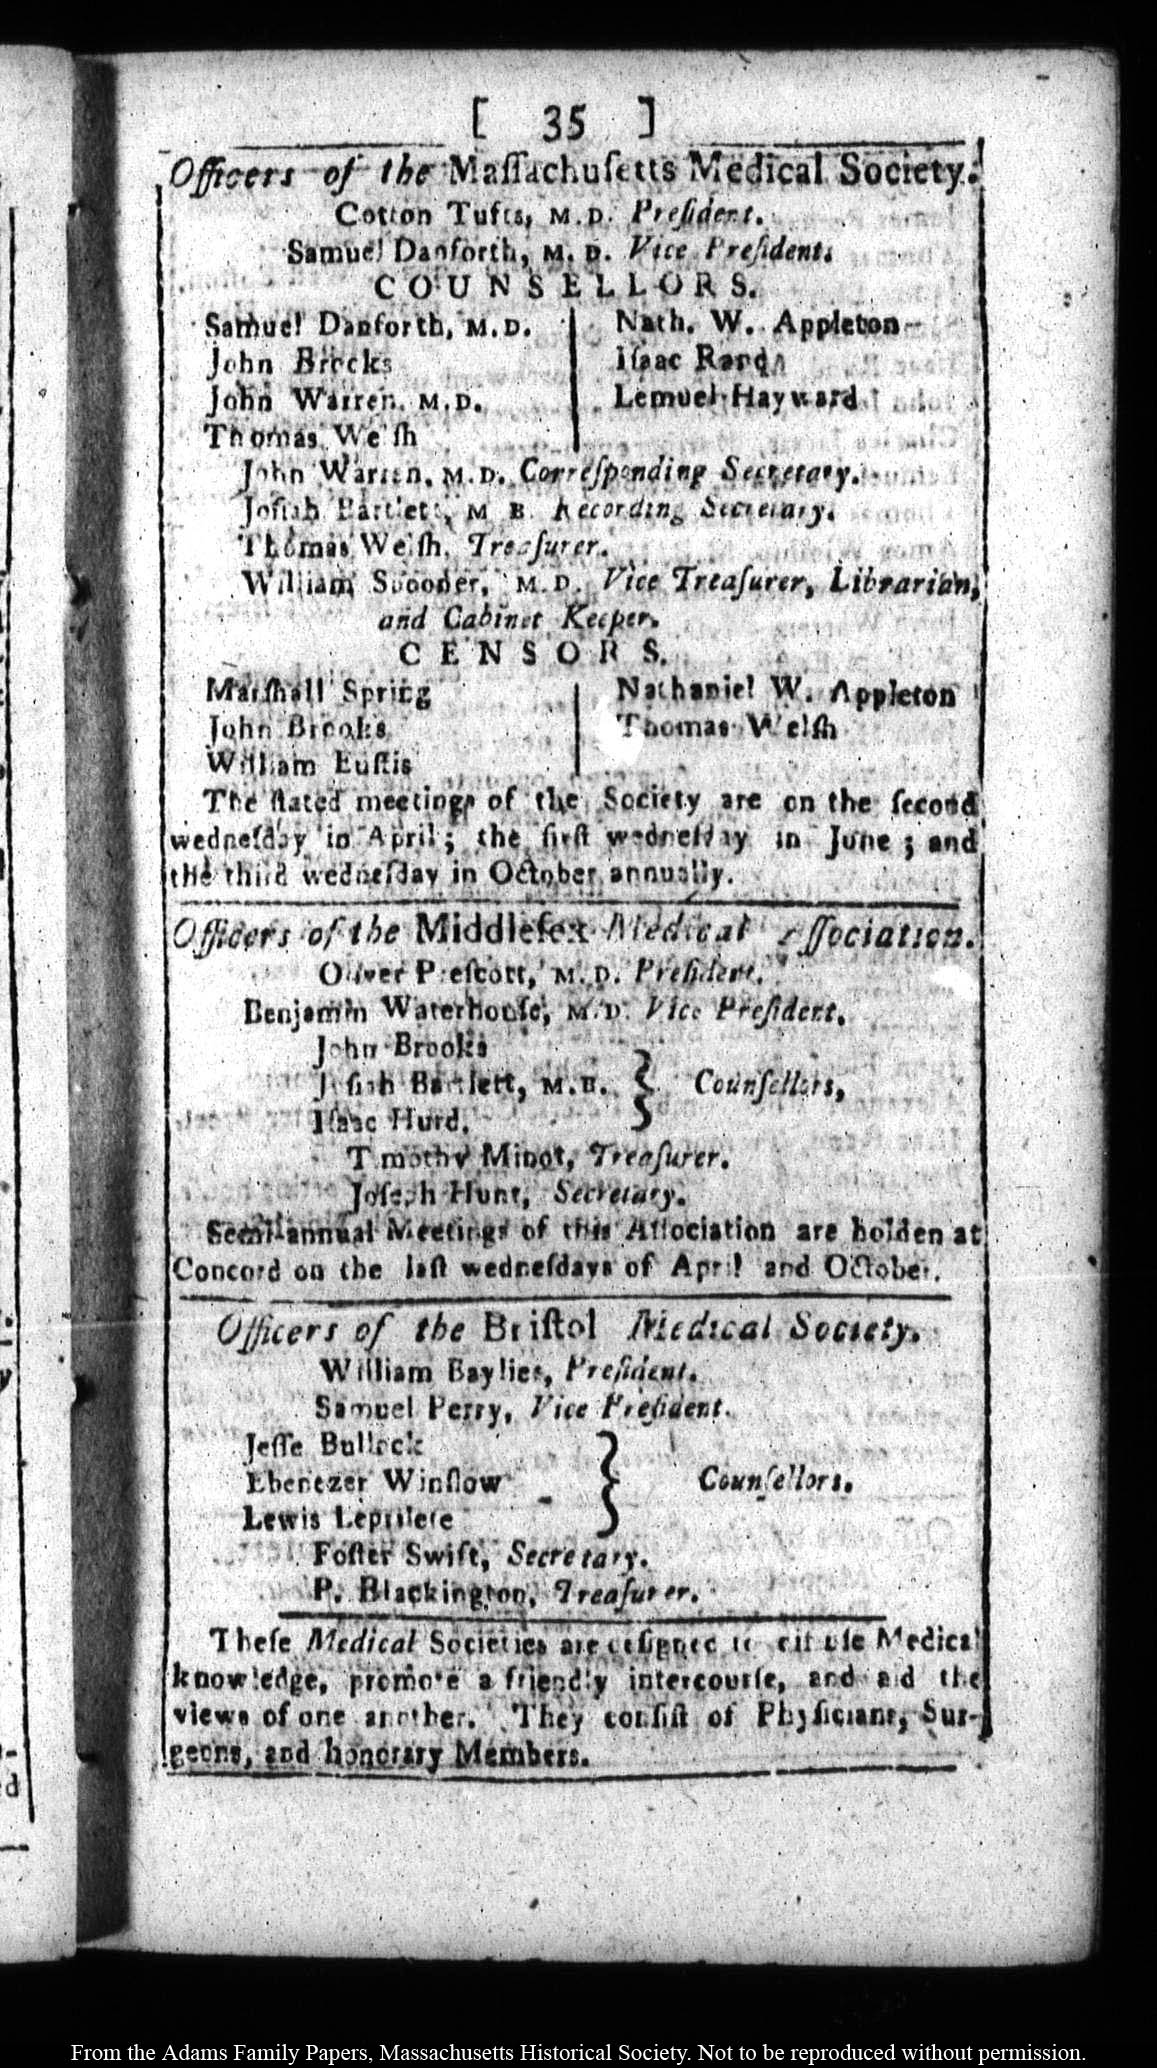 [ 35 ]
Officers of the Maſſachuſetts Medical Society.
Cotton Tufts, M.D. Preſident.
Samuel Danforth, M. D. Vice Preſident.
COUNSELLORS.
Samuel Danforth, M.D. Nath. W. Appleton
John Brooks Iſaac Rand
John Warren, M.D. Lemuel Hayward
Thomas Welſh
John Warren, M.D. Correſponding Secretary.
Joſiah Bartlett, M B. Recording Secretary.
Thomas Welſh, Treaſurer.
William Spooner, M.D. Vice Treaſurer, Librarian,
and Cabinet Keeper.
CENSORS.
Marſhall Spring Nathaniel W. Appleton
John Brooks Thomas Welſh
William Euſtis
The ſtated meetings of the Society are on the ſecond
wedneſday in April; the firſt wedneſday in June; and
the third wedneſday in October annually.
Officers of the Middleſex Medical Aſſociation.
Oliver Preſcott, M.D. Preſident.
Benjamin Waterhouſe, M.D. Vice Preſident.
John Brooks
Joſiah Bartlett, M.B. } Counſellors,
Iſaac Hurd,
Timothy Minot, Treaſurer.
Joſeph Hunt, Secretary.
Semiannual Meetings of this Aſſociation are holden at
Concord on the laſt wedneſdays of April and October.
Officers of the Briſtol Medical Society.
William Baylies, Preſident.
Samuel Perry, Vice Preſident.
Jeſſe Bullock
Ebenezer Winſlow } Counſellors.
Lewis
Foſter Swift, Secretary.
P. Blackington, Treaſurer.
Theſe Medical Societies are deſigned to diffuſe Medical
knowledge, promote a friendly intercourſe, and aid the
views of one another. They conſiſt of Phyſicians, Sur-
geons, and honorary Members.
From the Adams Family Papers, Massachusetts Historical Society. Not to be reproduced without permission.